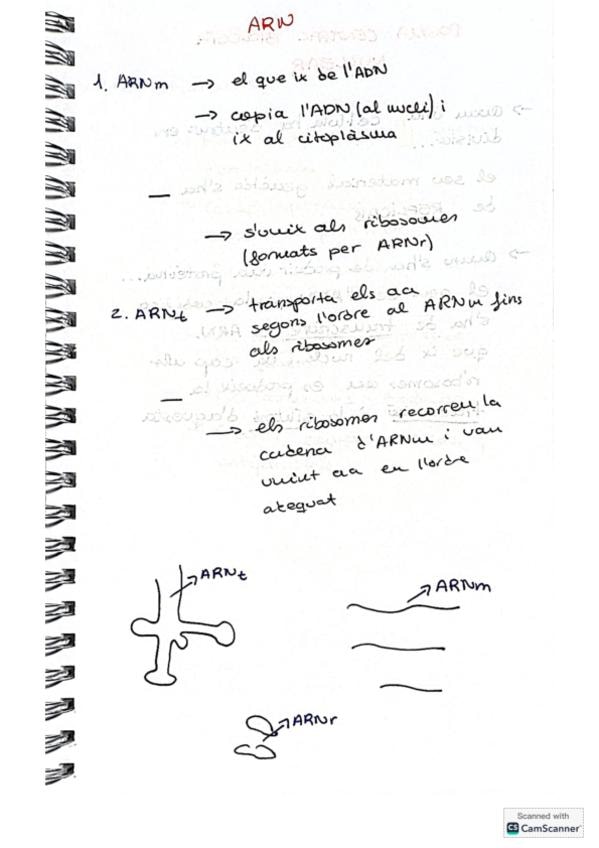 ARN
1. ARNm → el que ix de l'ADN
→ copia l'ADN (al nucli) i
ix al citoplàsma
— → s'unix als ribosomes
(formats per ARNr)
2. ARNt → transporta els aa
segons l'ordre al ARNm fins
als ribosomes
— → els ribosomes recorreu la
cadena d'ARNm i van
unint aa en l'ordre
adequat
ARNt
ARNm
ARNr
Scanned with
CS CamScanner